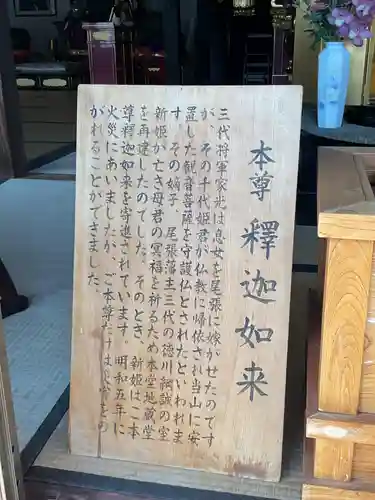 本尊 釋迦如来
三代将軍家光は息女を尾張に嫁かせたのです
が、その千代姫君が仏教に帰依され当山に安
置した観音菩薩を守護仏とされたといわれま
す。その嫡子、尾張藩主三代の徳川綱誠の室
新姫が亡き母君の冥福を祈るため本堂地蔵堂
を再建したのでした。そのとき、新姫はご本
尊釋迦如来を寄進されています。明和五年に
火災にあいましたが、ご本尊だけは火害をの
がれることができました。